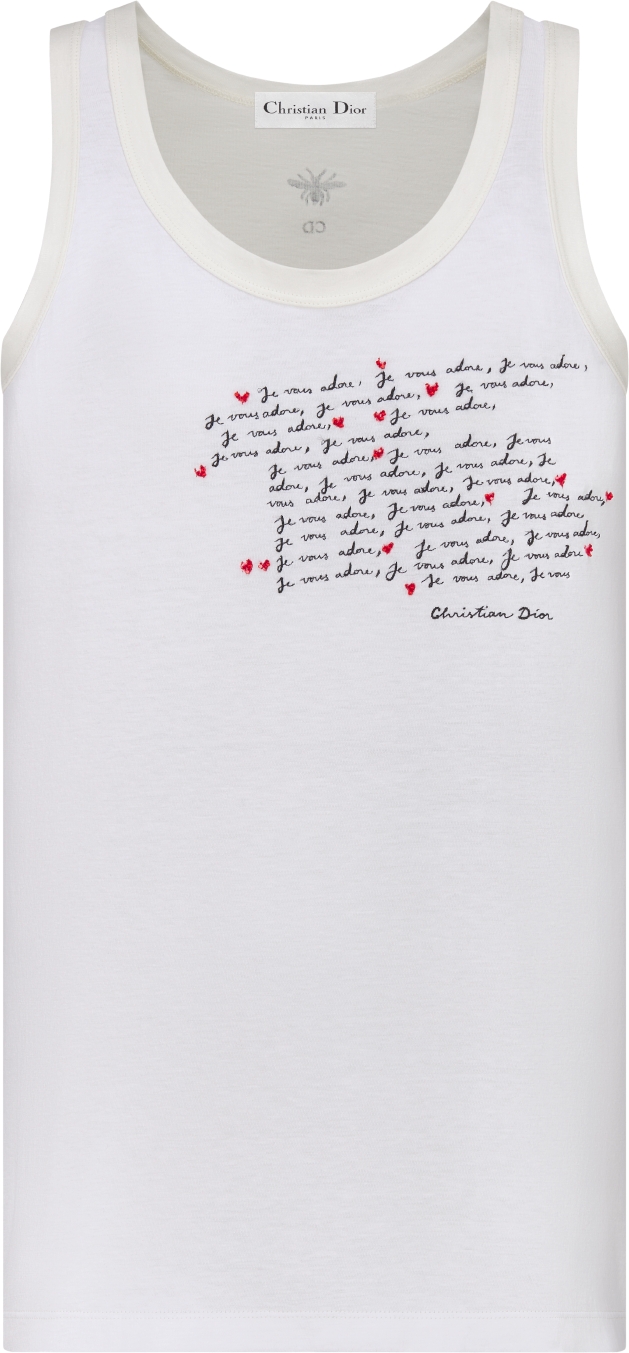 Christian Dior
PARIS
CD
Je vous adore, Je vous adore, Je vous adore,
Je vous adore, Je vous adore, Je vous adore,
Je vous adore, Je vous adore,
Je vous adore, Je vous adore,
Je vous adore, Je vous adore, Je vous
adore, Je vous adore, Je vous adore, Je
vous adore, Je vous adore, Je vous adore,
Je vous adore, Je vous adore, Je vous adore,
Je vous adore, Je vous adore, Je vous adore
Je vous adore, Je vous adore, Je vous adore,
Je vous adore, Je vous adore, Je vous adore
Je vous adore, Je vous
Christian Dior